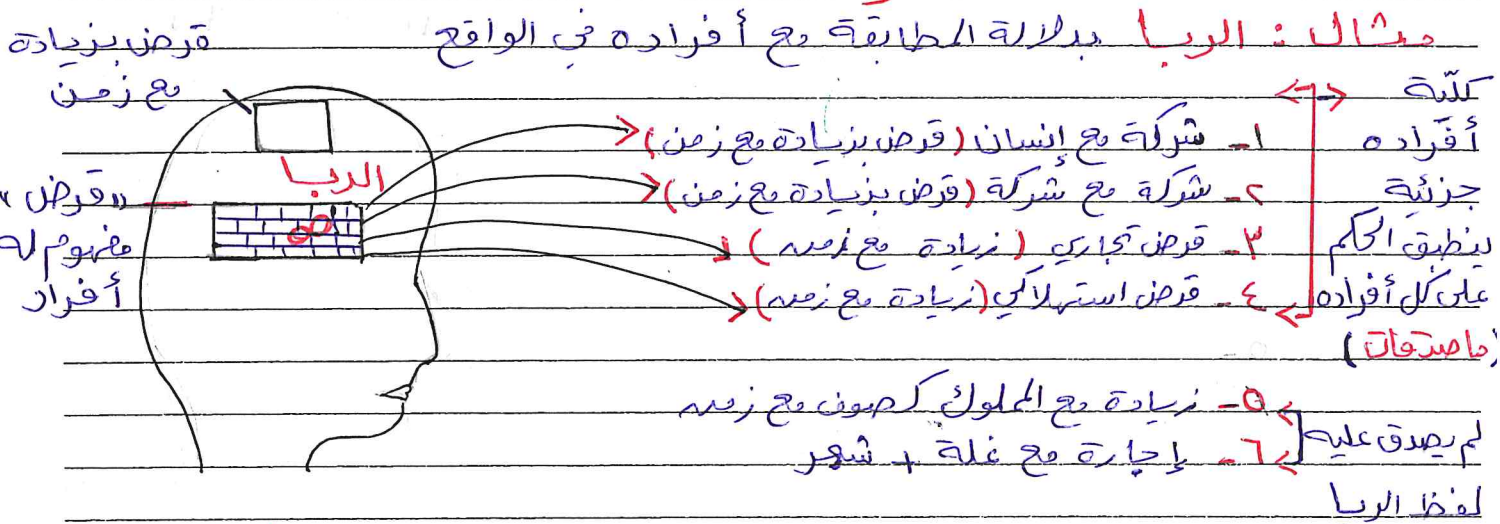 مثال : الربا بدلالة المطابقة مع أفراده في الواقع
قرض بزيادة
مع زمن
كلّية
أفراده
جزئية
ينطبق الحكم
على كل أفراده
(ماصدقات)
١- شركة مع إنسان (قرض بزيادة مع زمن)
٢- شركة مع شركة (قرض بزيادة مع زمن)
٣- قرض تجاري (زيادة مع زمن)
٤- قرض استهلاكي (زيادة مع زمن)
الربا
«قرض»
مفهوم له
أفراد
٥- زيادة مع المملوك كصوف مع زمن
٦- إجارة مع غلة + شهر
لم يصدق عليه
لفظ الربا